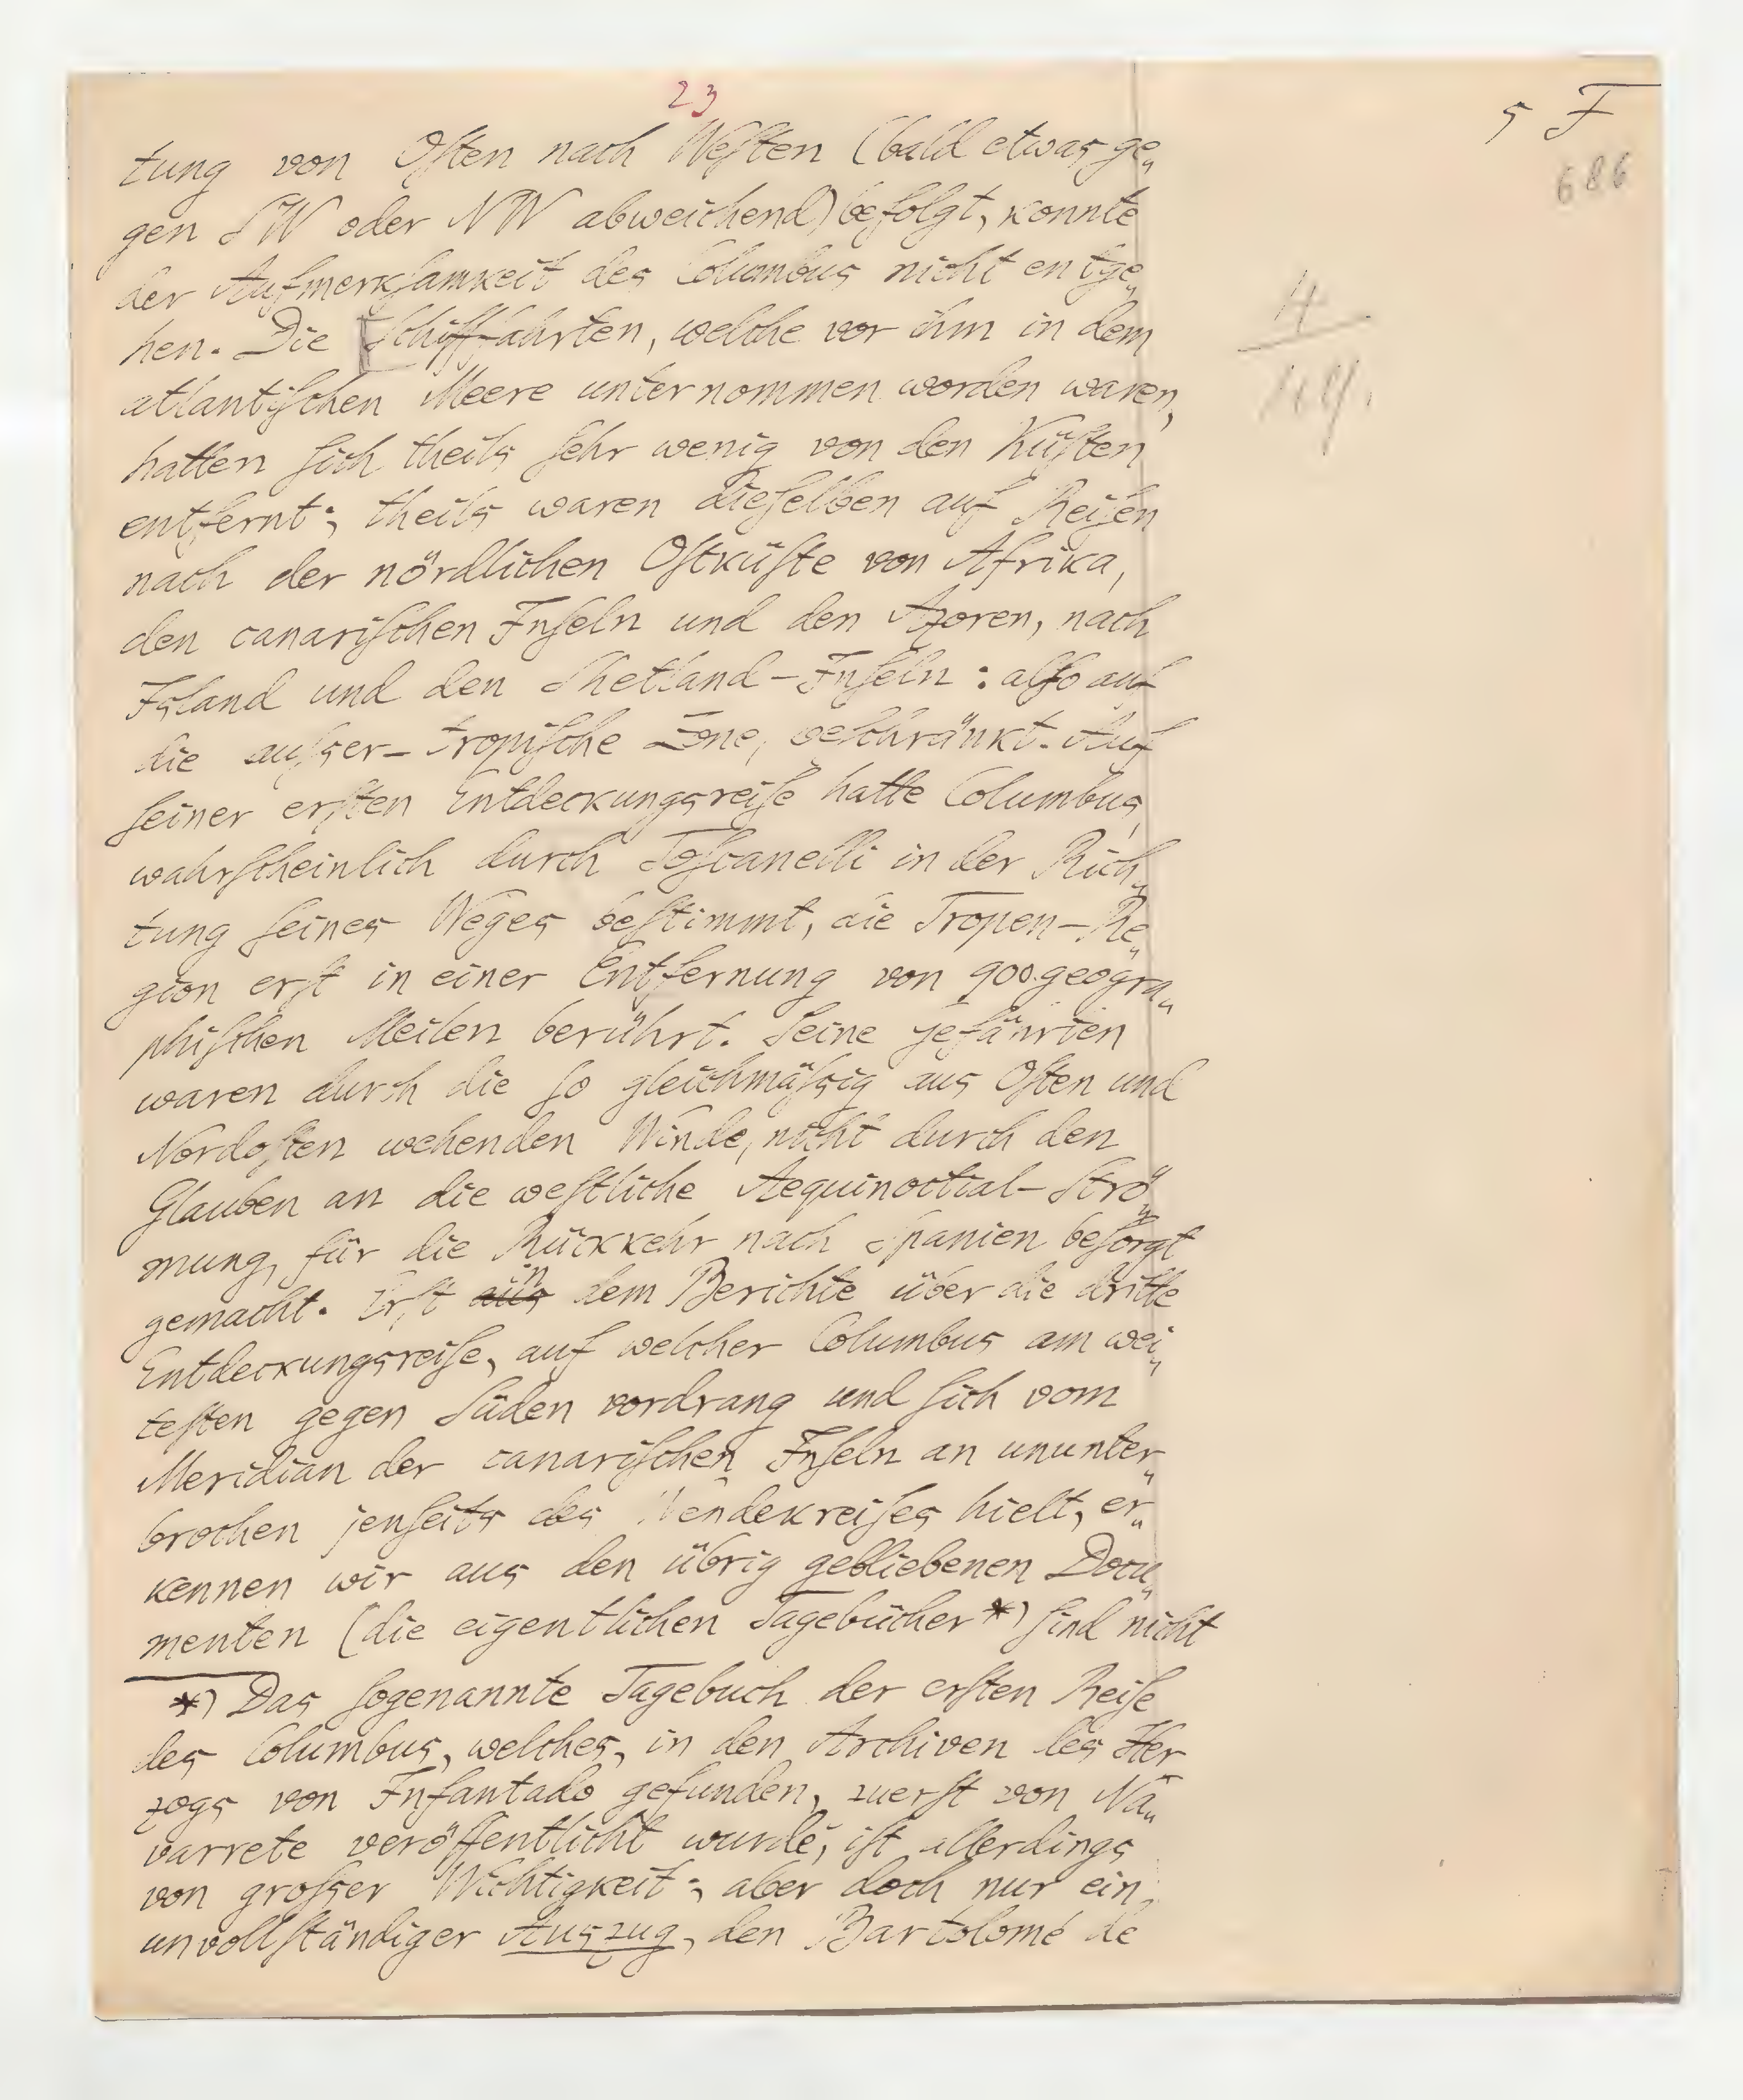 23
5 F
686
tung von Oſten nach Weſten (bald etwas ge„
gen SW oder NW abweichend) befolgt, konnte
der Aufmerkſamkeit des Columbus nicht entge„
hen. Die Schifffahrten, welche vor ihm in dem
atlantiſchen Meere unternommen worden waren,
hatten ſich theils ſehr wenig von den Küſten
entfernt; theils waren dieſelben auf Reiſen
nach der nördlichen Oſtküſte von Afrika,
den canariſchen Inſeln und den Azoren, nach
Island und den Shetland-Inſeln: alſo auf
die auſser-tropiſche Zone, beſchränkt. Auf
ſeiner erſten Entdeckungsreiſe hatte Columbus,
wahrſcheinlich durch Toſcanelli in der Rich„
tung ſeines Weges beſtimmt, die Tropen-Re„
gion erſt in einer Entfernung von 900 geogra„
phiſchen Meilen berührt. Seine Gefährten
waren durch die ſo gleichmäſsig aus Oſten und
Nordoſten wehenden Winde, nicht durch den
Glauben an die weſtliche Aequinoctial-Strö„
mung, für die Rückkehr nach Spanien beſorgt
gemacht. Erſt in dem Berichte über die dritte
Entdeckungsreiſe, auf welcher Columbus am wei„
teſten gegen Süden vordrang und ſich vom
Meridian der canariſchen Inſeln an ununter„
brochen jenſeits des Wendekreiſes hielt, er„
kennen wir aus den übrig gebliebenen Docu„
menten (die eigentlichen Tagebücher*) ſind nicht
*) Das ſogenannte Tagebuch der erſten Reiſe
des Columbus, welches, in den Archiven des Her
zogs von Infantado gefunden, zuerſt von Na„
varrete veröffentlicht wurde, iſt allerdings
von groſser Wichtigkeit; aber doch nur ein
unvollſtändiger Auszug, den Bartolomé de